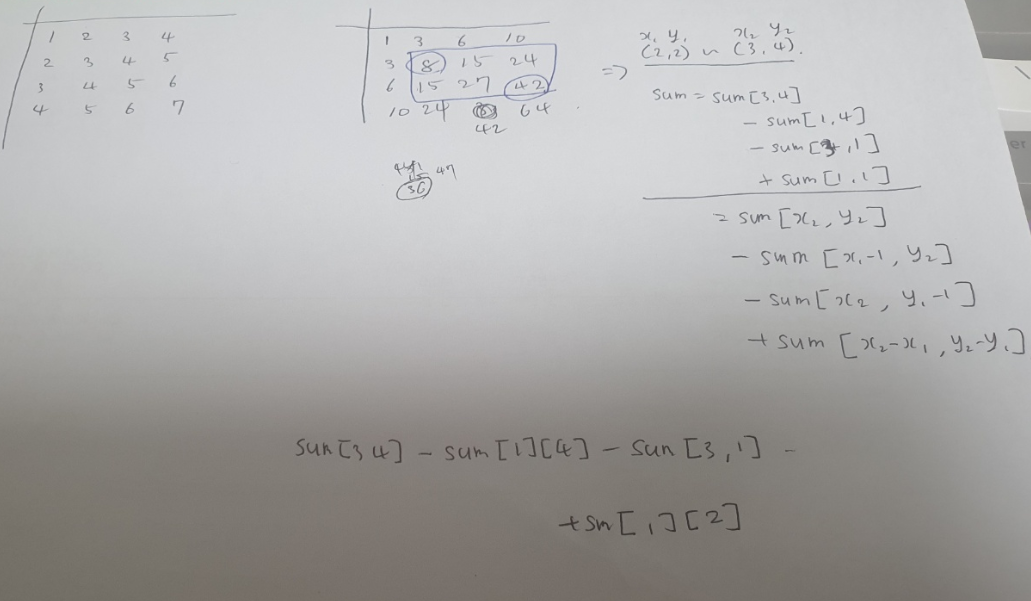 1 2 3 4
2 3 4 5
3 4 5 6
4 5 6 7
1 3 6 10
3 8 15 24
6 15 27 42
10 24 64
42
47
36
x₁ y₁ x₂ y₂
(2,2) ~ (3,4).
=>
sum = sum[3,4]
- sum[1,4]
- sum[3,1]
+ sum[1,1]
= sum[x₂, y₂]
- sum [x₁-1, y₂]
- sum[x₂, y₁-1]
+ sum [x₂-x₁, y₂-y₁]
sum[3 4] - sum[1][4] - sum[3,1] -
+ sm[1][2]